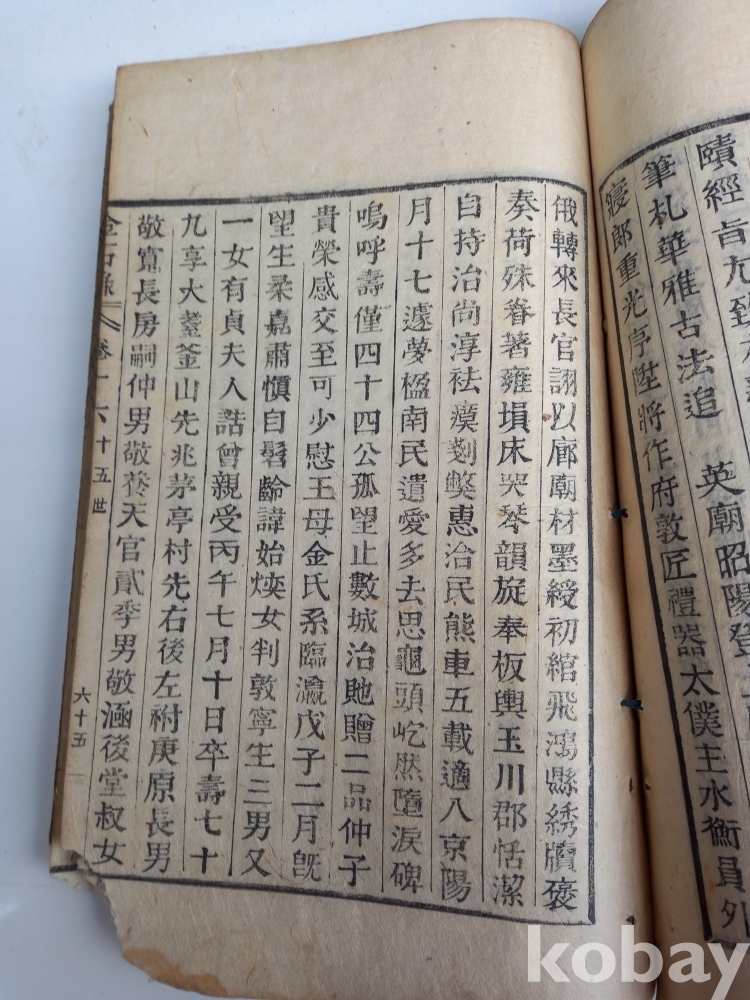 賾經旨尤致
筆札華雅古法追 英廟昭陽登
寢郎重光亭陞將作府敦匠禮器太僕主水衡員外
俄轉來長官詡以廊廟材墨綬初綰飛鴻縣綉牘褒
奏荷殊眷著雍塤床哭琴韻旋奉板輿玉川郡恬潔
自持治尚淳袪瘼剗弊惠洽民熊車五載適八京陽
月十七遽夢楹南民遺愛多去思龜頭屹然墮淚碑
嗚呼壽僅四十四公孤望止數城治貤贈二品仲子
貴榮感交至可少慰王母金氏系臨瀛戊子二月旣
望生柔嘉肅愼自髫齡諱始煐女判敦寧生三男又
一女有貞夫人誥曾親受丙午七月十日卒壽七十
九享大耋釜山先兆茅亭村先右後左祔庚原長男
敬寬長房嗣仲男敬養天官貳季男敬涵後堂叔女
金石錄 卷十六 十五世 六十五
kobay